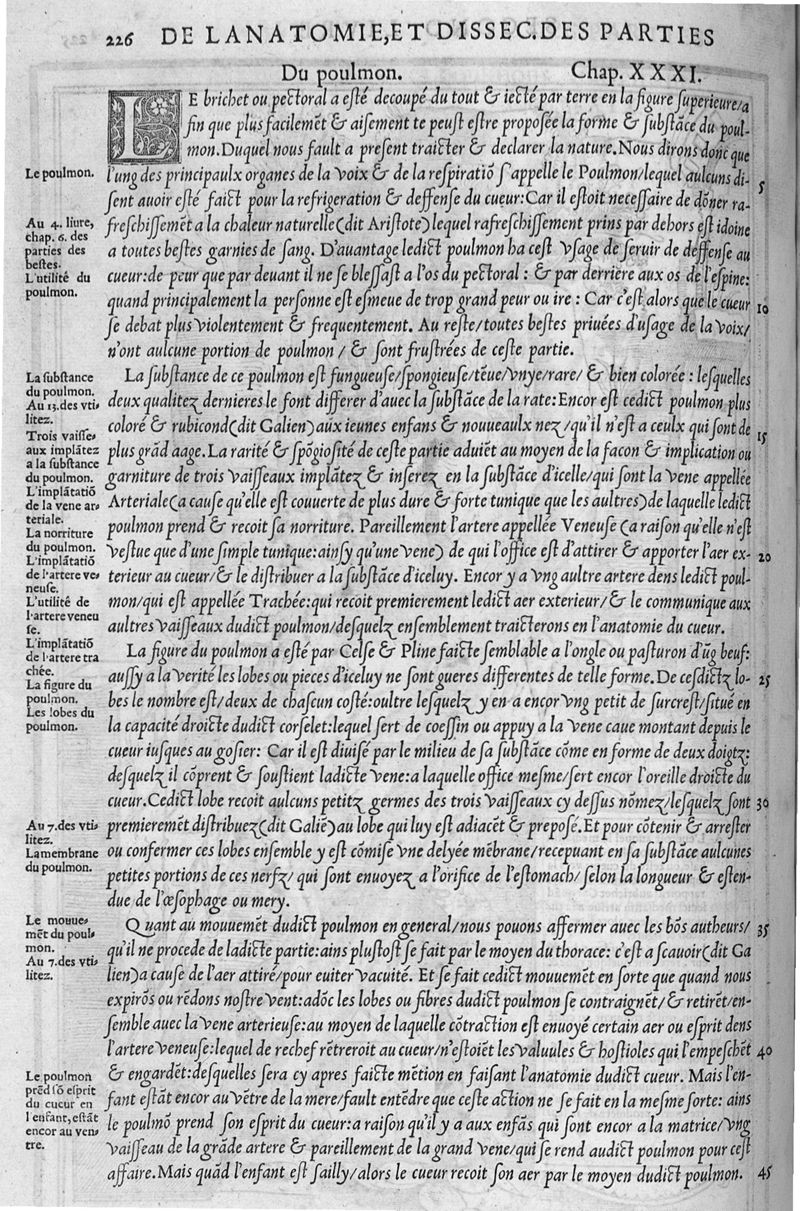 226 DE LANATOMIE, ET DISSEC. DES PARTIES
Du poulmon. Chap. XXXI.
LE brichet ou pectoral a esté decoupé du tout & iecté par terre en la figure superieure/a
fin que plus facilemēt & aisement te peust estre proposée la forme & substāce du poul-
mon. Duquel nous fault a present traicter & declarer la nature. Nous dirons donc que
Le poulmon.
l'ung des principaulx organes de la voix & de la respiratiō s'appelle le Poulmon/lequel aulcuns di-
5
sent auoir esté faict pour la refrigeration & deffense du cueur: Car il estoit necessaire de dōner ra-
Au 4. liure,
chap. 6. des
parties des
bestes.
freschissemēt a la chaleur naturelle (dit Aristote) lequel rafreschissement prins par dehors est idoine
a toutes bestes garnies de sang. D'auantage ledict poulmon ha cest vsage de seruir de deffense au
L'utilité du
poulmon.
cueur: de peur que par deuant il ne se blessast a l'os du pectoral: & par derriere aux os de l'espine:
quand principalement la personne est esmeue de trop grand peur ou ire: Car c'est alors que le cueur
10
se debat plus violentement & frequentement. Au reste/toutes bestes priuées d'usage de la voix/
n'ont aulcune portion de poulmon/ & sont frustrées de ceste partie.
La substance
du poulmon.
La substance de ce poulmon est fungueuse/spongieuse/tēue/vnye/rare/ & bien colorée: lesquelles
Au 13. des vti-
litez.
deux qualitez dernieres le font differer d'auec la substāce de la rate: Encor est cedict poulmon plus
coloré & rubicond (dit Galien) aux ieunes enfans & nouueaulx nez/qu'il n'est a ceulx qui sont de
15
Trois vaisse-
aux implātez
a la substance
du poulmon.
plus grād aage. La rarité & spōgiosité de ceste partie aduiēt au moyen de la facon & implication ou
garniture de trois vaisseaux implātez & inserez en la substāce d'icelle/qui sont la vene appellée
L'implātatiō
de la vene ar-
teriale.
Arteriale (a cause qu'elle est couuerte de plus dure & forte tunique que les aultres) de laquelle ledict
La norriture
du poulmon.
poulmon prend & recoit sa norriture. Pareillement l'artere appellée Veneuse (a raison qu'elle n'est
L'implātatiō
de l'artere ve-
neuse.
vestue que d'une simple tunique: ainsy qu'une vene) de qui l'office est d'attirer & apporter l'aer ex-
20
terieur au cueur/& le distribuer a la substāce d'iceluy. Encor y a vng aultre artere dens ledict poul-
L'utilité de
l'artere veneu
se.
mon/qui est appellée Trachée: qui recoit premierement ledict aer exterieur/& le communique aux
aultres vaisseaux dudict poulmon/desquelz ensemblement traicterons en l'anatomie du cueur.
L'implātatiō
de l'artere tra
chée.
La figure du
poulmon.
La figure du poulmon a esté par Celse & Pline faicte semblable a l'ongle ou pasturon d'ūg beuf:
aussy a la verité les lobes ou pieces d'iceluy ne sont gueres differentes de telle forme. De cesdictz lo-
25
Les lobes du
poulmon.
bes le nombre est/deux de chascun costé: oultre lesquelz y en a encor vng petit de surcrest/situé en
la capacité droicte dudict corselet: lequel sert de coessin ou appuy a la vene caue montant depuis le
cueur iusques au gosier: Car il est diuisé par le milieu de sa substāce cōme en forme de deux doigtz:
desquelz il cōprent & soustient ladicte vene: a laquelle office mesme/sert encor l'oreille droicte du
cueur. Cedict lobe recoit aulcuns petitz germes des trois vaisseaux cy dessus nōmez/lesquelz sont
30
Au 7. des vti-
litez.
premieremēt distribuez (dit Galiē) au lobe qui luy est adiacēt & preposé. Et pour cōtenir & arrester
La membrane
du poulmon.
ou confermer ces lobes ensemble y est cōmise vne delyée mēbrane/recepuant en sa substāce aulcunes
petites portions de ces nerfz/ qui sont enuoyez a l'orifice de l'estomach/ selon la longueur & esten-
due de l'œsophage ou mery.
Le mouue-
mēt du poul-
mon.
Quant au mouuemēt dudict poulmon en general/nous pouons affermer auec les bōs autheurs/
35
Au 7. des vti-
litez.
qu'il ne procede de ladicte partie: ains plustost se fait par le moyen du thorace: c'est a scauoir (dit Ga
lien) a cause de l'aer attiré/pour euiter vacuité. Et se fait cedict mouuemēt en sorte que quand nous
expirōs ou rēdons nostre vent: adōc les lobes ou fibres dudict poulmon se contraignēt/& retirēt/en-
semble auec la vene arterieuse: au moyen de laquelle cōtraction est enuoyé certain aer ou esprit dens
l'artere veneuse: lequel de rechef rētreroit au cueur/n'estoiēt les valuules & hostioles qui l'empeschēt
40
Le poulmon
prēd sō esprit
du cueur en
l'enfant, estāt
encor au ven-
tre.
& engardēt: desquelles sera cy apres faicte mētion en faisant l'anatomie dudict cueur. Mais l'en-
fant estāt encor au vētre de la mere/fault entēdre que ceste action ne se fait en la mesme sorte: ains
le poulmō prend son esprit du cueur: a raison qu'il y a aux enfās qui sont encor a la matrice/vng
vaisseau de la grāde artere & pareillement de la grand vene/qui se rend audict poulmon pour cest
affaire. Mais quād l'enfant est sailly/alors le cueur recoit son aer par le moyen dudict poulmon.
45